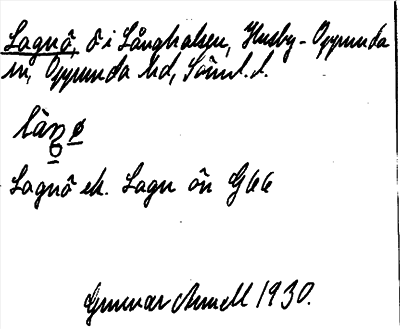 Lagnö, ö i Långhalsen, Husby-Oppunda
sn, Oppunda hd, Söml. l.
Lagnö ek. Lagn ön G66
Gunnar 1930.